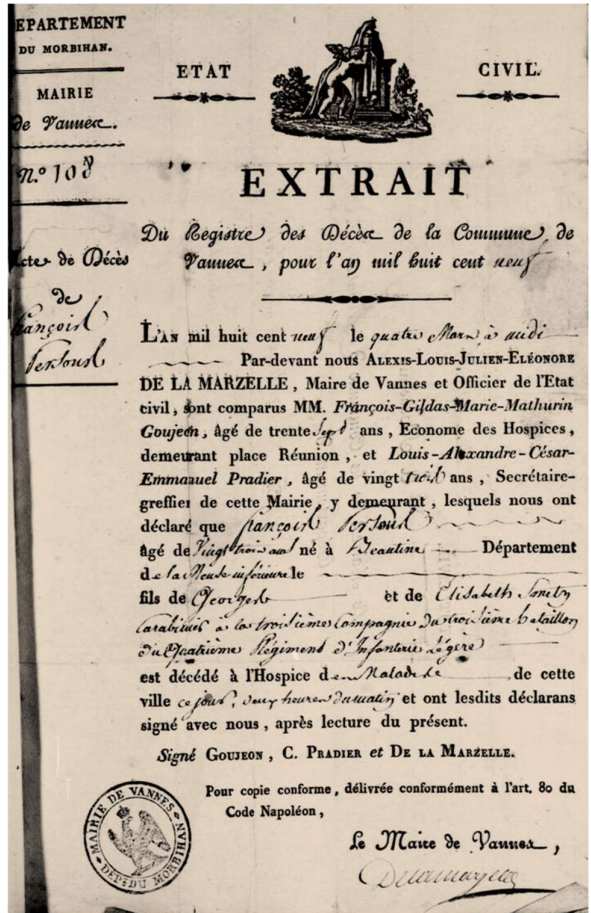 EPARTEMENT
DU MORBIHAN.
MAIRIE
de Vannes.
N.º 108
Acte de Décès
de
françois
ETAT
CIVIL.
EXTRAIT
Du Registre des Décès de la Commune de
Vannes, pour l'an mil huit cent neuf
L'AN mil huit cent neuf le quatre Mars à midi
Par-devant nous ALEXIS-LOUIS-JULIEN-ELÉONORE
DE LA MARZELLE, Maire de Vannes et Officier de l'Etat
civil, sont comparus MM. François-Gildas-Marie-Mathurin
Goujeon, âgé de trente sept ans, Econome des Hospices,
demeurant place Réunion, et Louis-Alexandre-César-
Emmanuel Pradier, âgé de vingt trois ans, Secrétaire-
greffier de cette Mairie, y demeurant, lesquels nous ont
déclaré que françois
âgé de Vingt trois ans né à Département
de la Meuse inférieure le
fils de Georges et de Elisabeth
Carabinier à la troisième Compagnie du troisième bataillon
du Quatrième Régiment d'Infanterie Légère
est décédé à l'Hospice de cette
ville ce jour, deux heures du matin et ont lesdits déclarans
signé avec nous, après lecture du présent.
Signé GOUJEON, C. PRADIER et DE LA MARZELLE.
Pour copie conforme, délivrée conformément à l'art. 80 du
Code Napoléon,
Le Maire de Vannes,
MAIRIE DE VANNES
DEP.T DU MORBIHAN